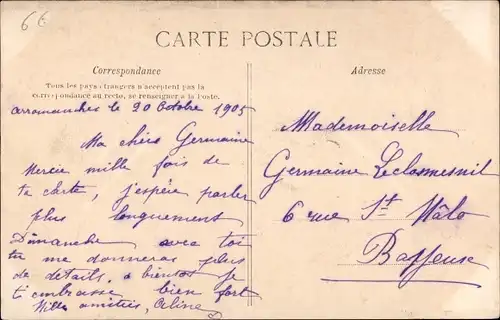 66
CARTE POSTALE
Correspondance
Tous les pays étrangers n'acceptent pas la
correspondance au recto, se renseigner à la Poste.
Arromanches le 20 Octobre 1905
Ma chère Germaine
Mercie mille fois de
ta carte, j'espère parler
plus longuement
Dimanche avec toi
tu me donneras plus
de details, a bientôt je
t'embrasse bien fort
Mille amitiés, Celine
Adresse
Mademoiselle
Germaine
6 rue St Malo
Bayeux